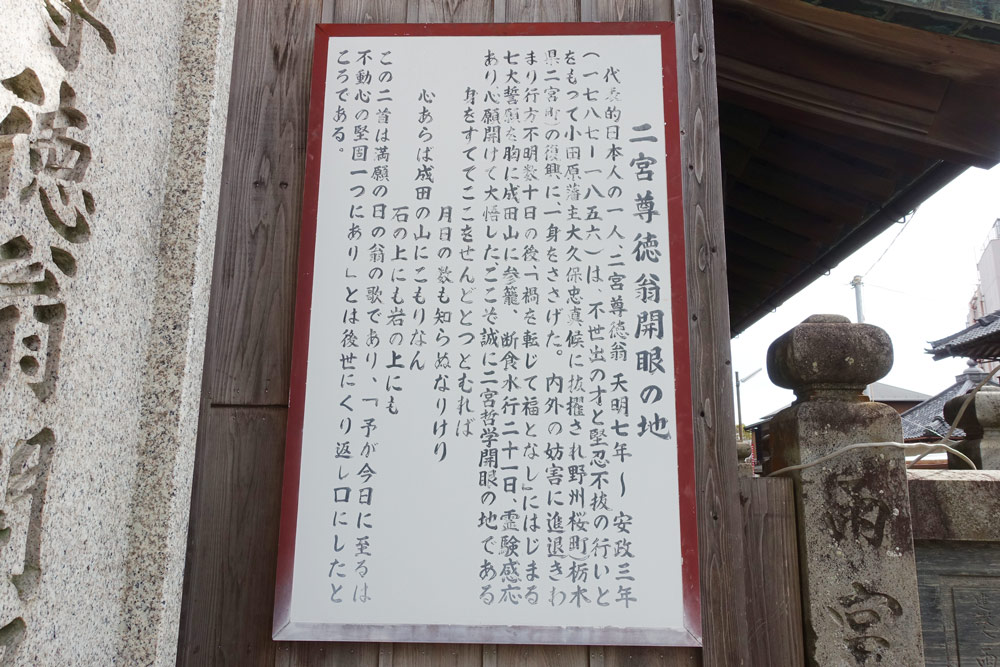 二宮尊徳翁開眼の地
代表的日本人の一人、二宮尊徳翁天明七年〜安政三年
(一七八七ー一八五六)は、不世出の才と堅忍不抜の行いと
をもつて小田原藩主大久保忠真候に抜擢され野州桜町(栃木
県二宮町)の復興に、一身をささげた。内外の妨害に進退きわ
まり行方不明数十日の後、「禍を転じて福となし」にはじまる
七大誓願を胸に成田山に参籠、断食水行二十一日、霊験感応
あり、心願開けて大悟した、ここぞ誠に二宮哲学開眼の地である
身をすててここをせんどとつとむれば
月日の数も知らぬなりけり
心あらば成田の山にこもりなん
石の上にも岩の上にも
この二首は満願の日の翁の歌であり、「予が今日に至るは
不動心の堅固一つにあり」とは後世にくり返し口にしたと
ころである。
徳翁開
雨宮